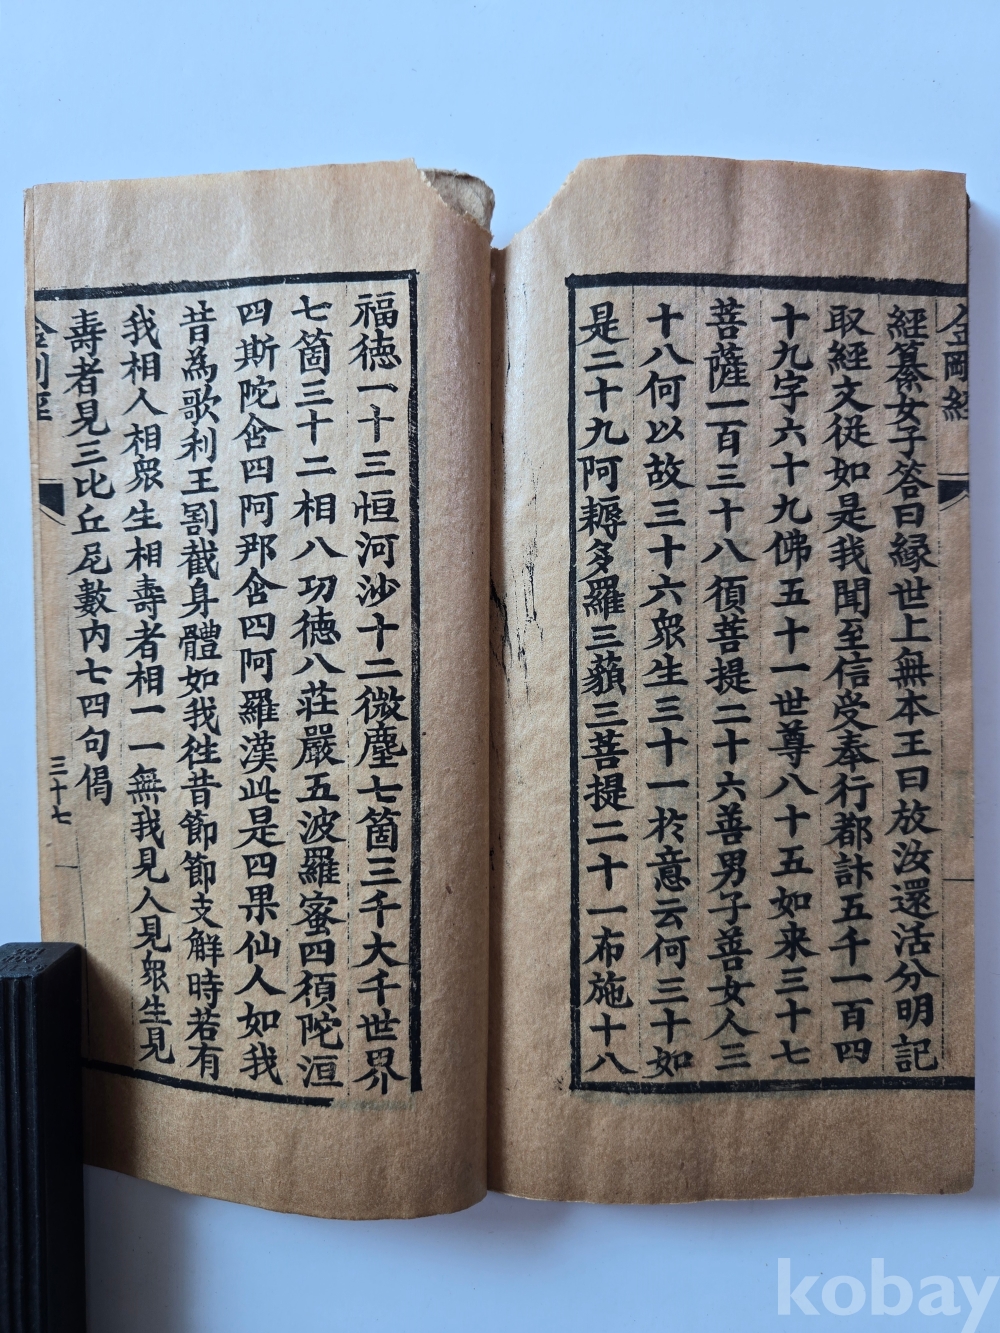 金剛經
經纂女子答曰緣世上無本王曰放汝還活分明記
取經文從如是我聞至信受奉行都計五千一百四
十九字六十九佛五十一世尊八十五如来三十七
菩薩一百三十八須菩提二十六善男子善女人三
十八何以故三十六衆生三十一於意云何三十如
是二十九阿耨多羅三藐三菩提二十一布施十八
福德一十三恒河沙十二微塵七箇三千大千世界
七箇三十二相八功德八莊嚴五波羅蜜四須陀洹
四斯陀含四阿那含四阿羅漢此是四果仙人如我
昔為歌利王割截身體如我徃昔節節支解時若有
我相人相衆生相壽者相一一無我見人見衆生見
壽者見三比丘尼數内七四句偈
金剛經
三十七
kobay